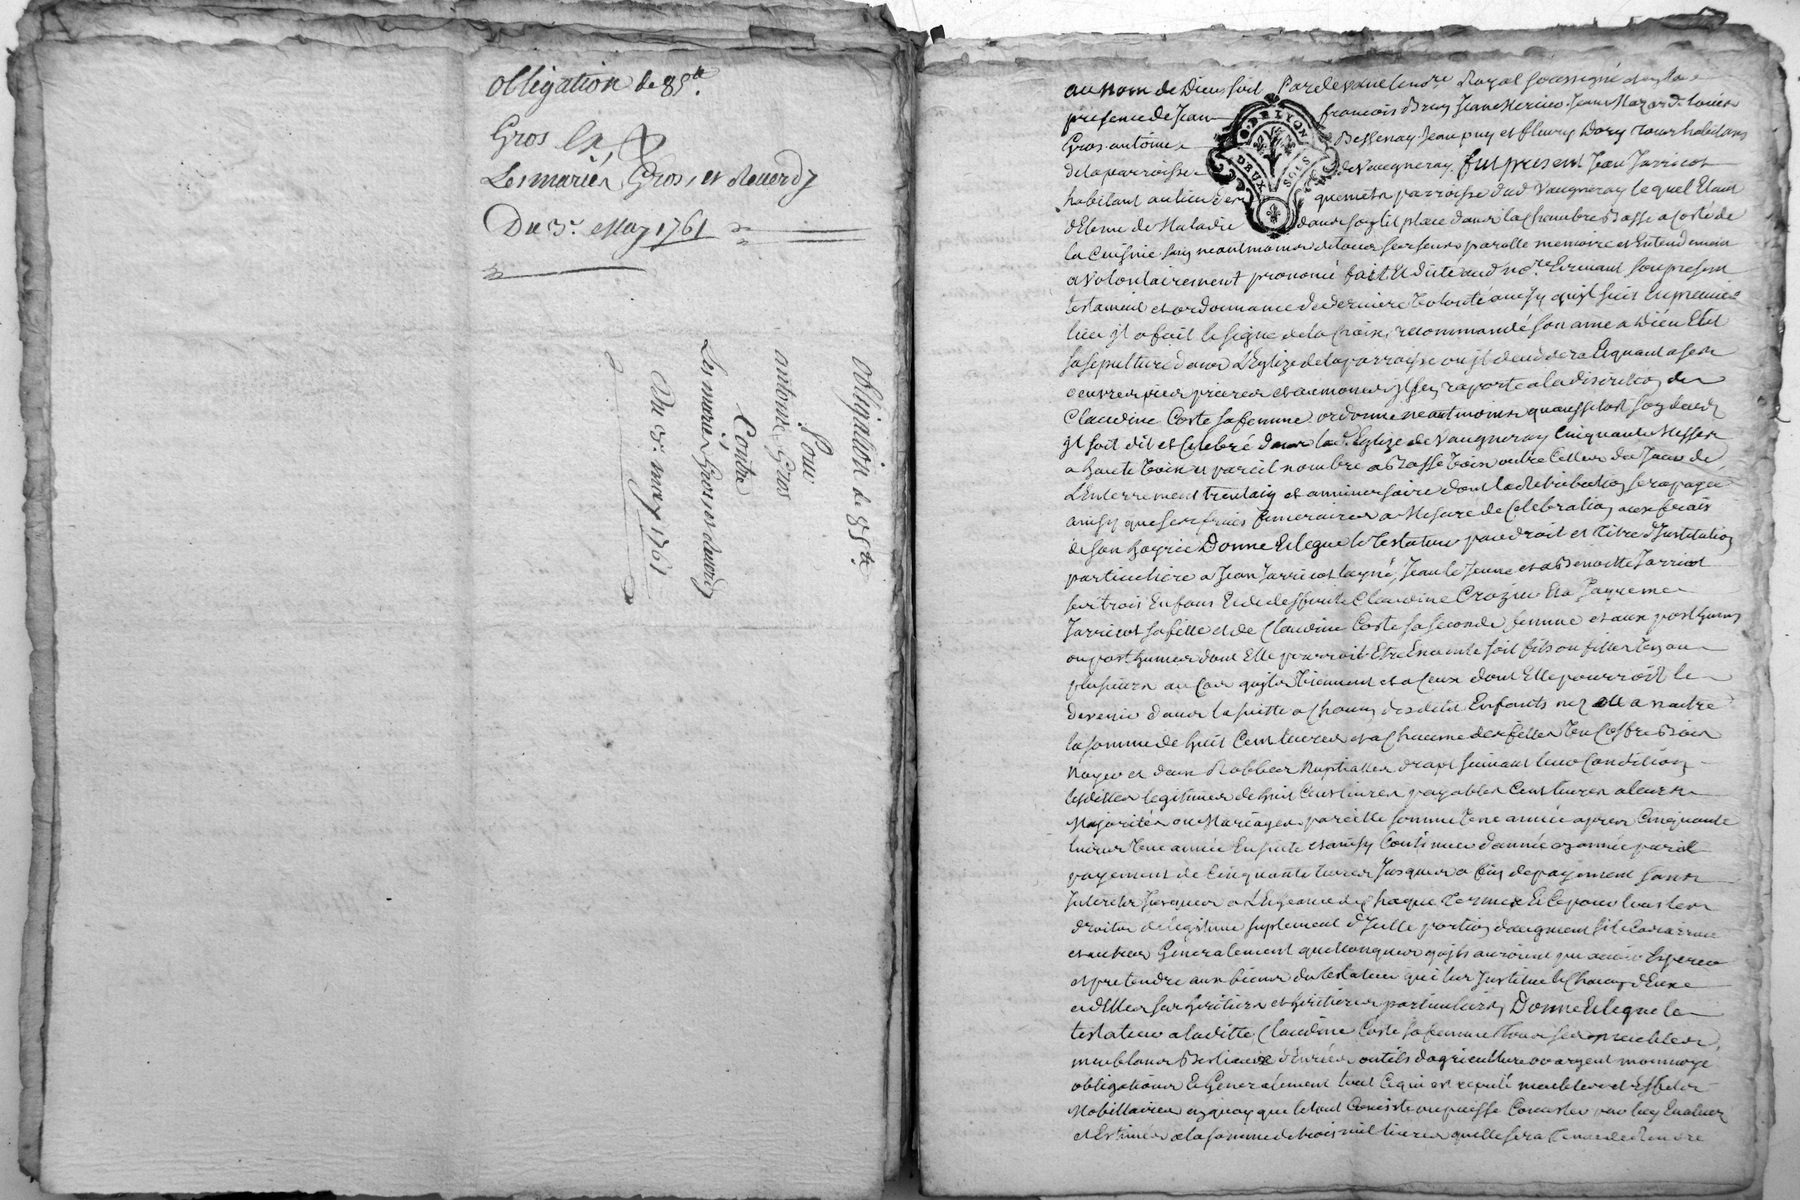 obligation de 85tt.
Gros
Les mariés Gros, et Reverdy
Du 3e. May 1761
obligation de 85tt.
Pour
antoine Gros
Contre
Les mariés Gros et Reverdy
Du 3e. may 1761
au nom de Dieu soit Pardevant le nore Royal soussigné et en la
presence de Jean francois Jean Jean Mazard Louis
Gros antoine Bessenay Jean puy et fleury Dory tous habitans
de la parroisse de Vaugneray, fut present Jean Jarricot
habitant au lieu des parroisse dud Vaugneray lequel Etant
detenu de Maladie dans son lit place dans la chambre Basse a Costé de
la Cuisine sain neantmoins de tous ses sens parolle memoire et Entendement
a volontairement prononcé fait Et dicté aud nore. Ecrivant son present
testament et ordonnance de derniere Volonté ainsy qu'il suit En premier
lieu jl a fait le signe de la Croix, recommandé son ame a Dieu Elit
sa sepulture dans L'Eglize de la parroisse ou jl decedera Et quant a ses
oeuvres pies prieres et aumones jl s'en raporte a la discretion de
Claudine Coste sa femme ordonne neantmoins qu'aussitot son deceds
jl soit dit et Celebré dans lad. Eglize de Vaugneray Cinquante Messes
a haute Voix et pareil nombre a Basse Voix outre Celles du Jour de
L'Enterrement trentain et anniversaire dont la Retribution sera payée
ainsy que ses frais funeraires a Mesure de Celebration aux frais
de son hoyrie Donne Et legue le Testateur par droit et Titre d'Institution
particuliere a Jean Jarricot layné, Jean le Jeune et a Benoitte Jarricot
ses trois Enfans Et de deffunte Claudine Crozier Et a
Jarricot sa fille et de Claudine Coste sa seconde femme et aux posthumes
ou posthumes dont Elle pourroit Etre Enceinte soit fils ou filles Un ou
plusieurs au Cas qu'ils Viennent et a Ceux dont Elle pourroit le
devenir dans la suitte a Chacun desdits Enfants nez et a naitre
la somme de huit Cent livres et a Chacune des filles Un Coffre Bois
Noyer et deux Robbes Nuptialles drap suivant leur Condition
lesdittes legitimes de huit Cent livres payables Cent livres a leurs
Majorités ou Mariages pareille somme Une année apres Cinquante
livres Une année Ensuite et ainsy Continuer d'année en année pareil
payement de Cinquante livres Jusques a fin de payement sans
Interets Jusques a L'Echeance de Chaque Terme Et Ce pour tous les
droits de legitime suplement d'Icelle portion d'augment
et autres Generalement quelconques qu'ils auroient pu avoir Esperer
et pretendre aux biens du testateur qui les Institue Chacun d'Eux
et d'Elles ses heritiers et heritieres particuliers, Donne Et legue le
testateur a laditte Claudine Coste sa femme Tous ses meubles
meublans Bestiaux Denrées outils d'agriculture or argent monnoye
obligations Et Generalement tout Ce qui est reputé meubles et Effets
Mobilliaires en quoy que le tout Consiste ou puisse Consister
et Estimés a la somme de trois mil livres qu'elle sera Tenue de Rendre